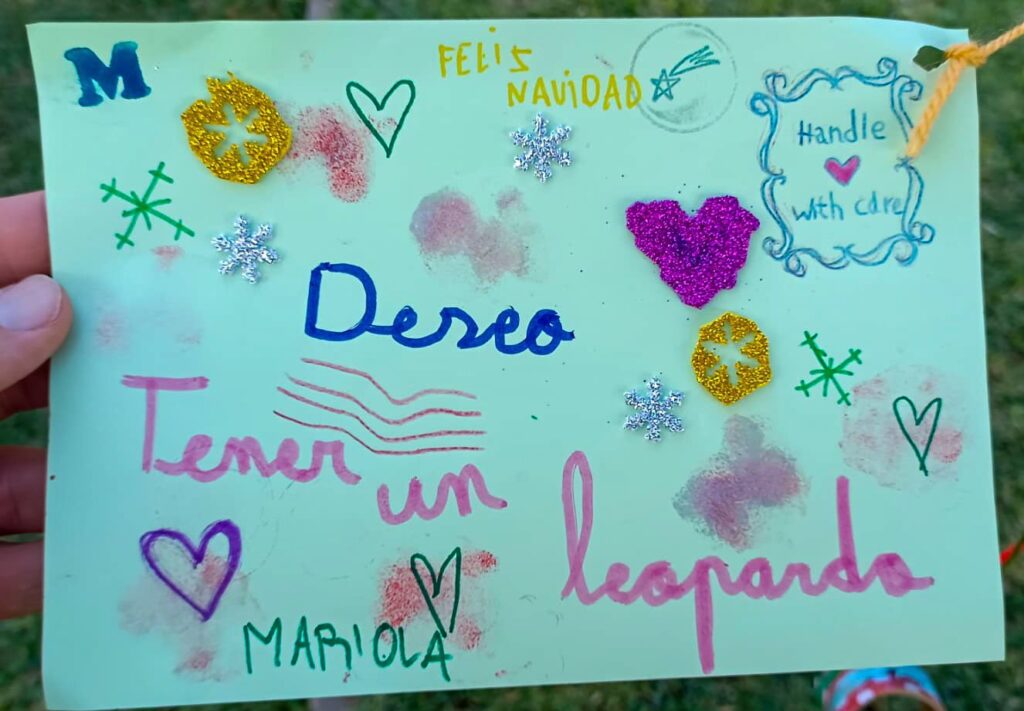 M
FELIS
NAViDAD
Handle
with care
Deseo
Tener
un
leopardo
MARiOLA